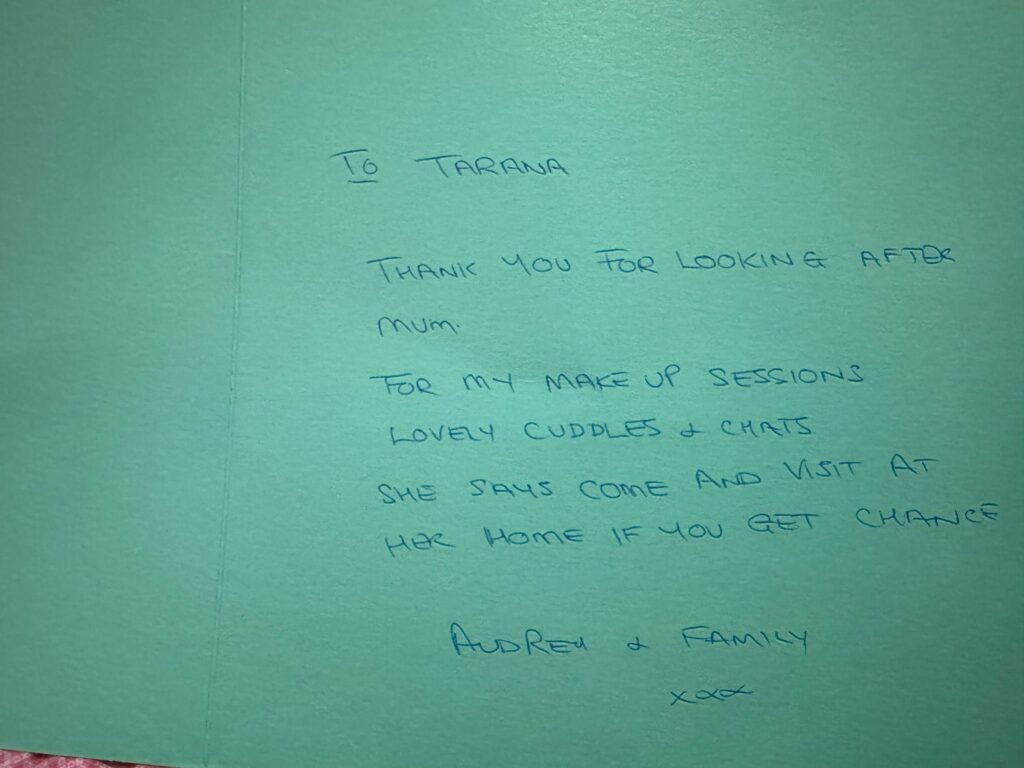 TO TARANA
THANK YOU FOR LOOKING AFTER
MUM.
FOR MY MAKE UP SESSIONS
LOVELY CUDDLES & CHATS
SHE SAYS COME AND VISIT AT
HER HOME IF YOU GET CHANCE
AUDREY & FAMILY
xxx